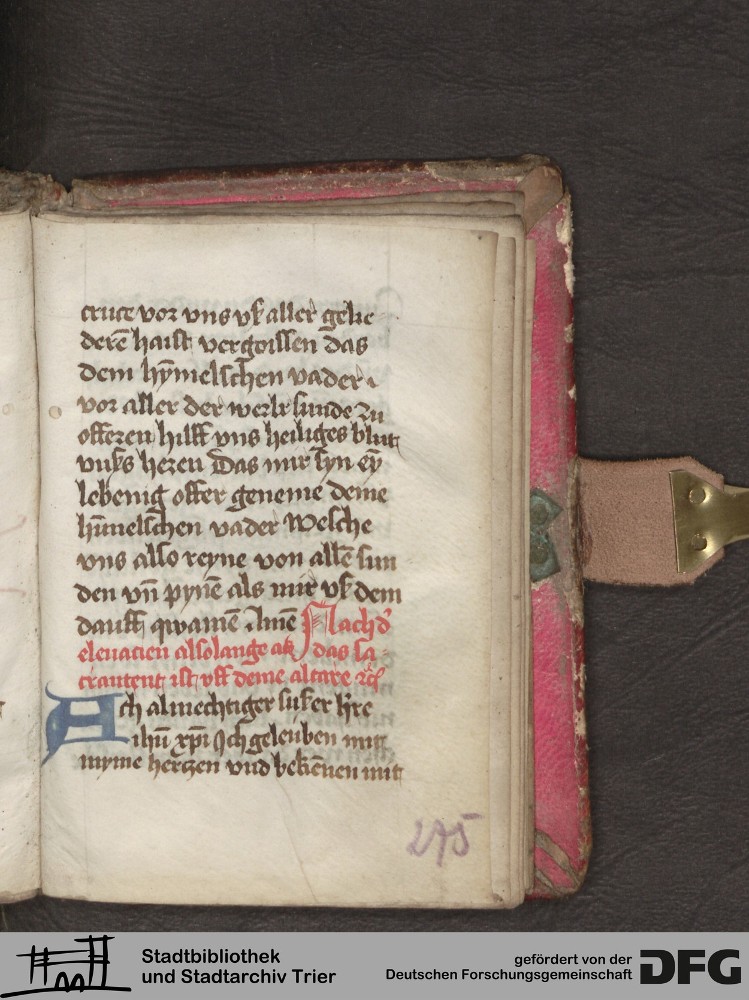 cruce vor vns vſʒ aller gelie-
derē haiſt vergoiſſen das
dem hȳmelſchen vader
vor aller der werlt ſunde zu
offeren hilff vns heiliges blut
vnſs heren Das mir ſyn eȳ
lebenig offer geneme deme
hīmelſchen vader Welche
vns alſo reyne von allē ſun
den vn̄ pynē als mir vſʒ dem
dauff qwamē Amē Nach d'
eleuacien alſolange als das ſa-
crament iſt vff deme altare ꝛc̄
Ach almechtiger ſuſʒer h're
ihū xp̄i Ich geleuben mit
myme hertzen vnd bekēnen mit
275
Stadtbibliothek
und Stadtarchiv Trier
gefördert von der
Deutschen Forschungsgemeinschaft
DFG